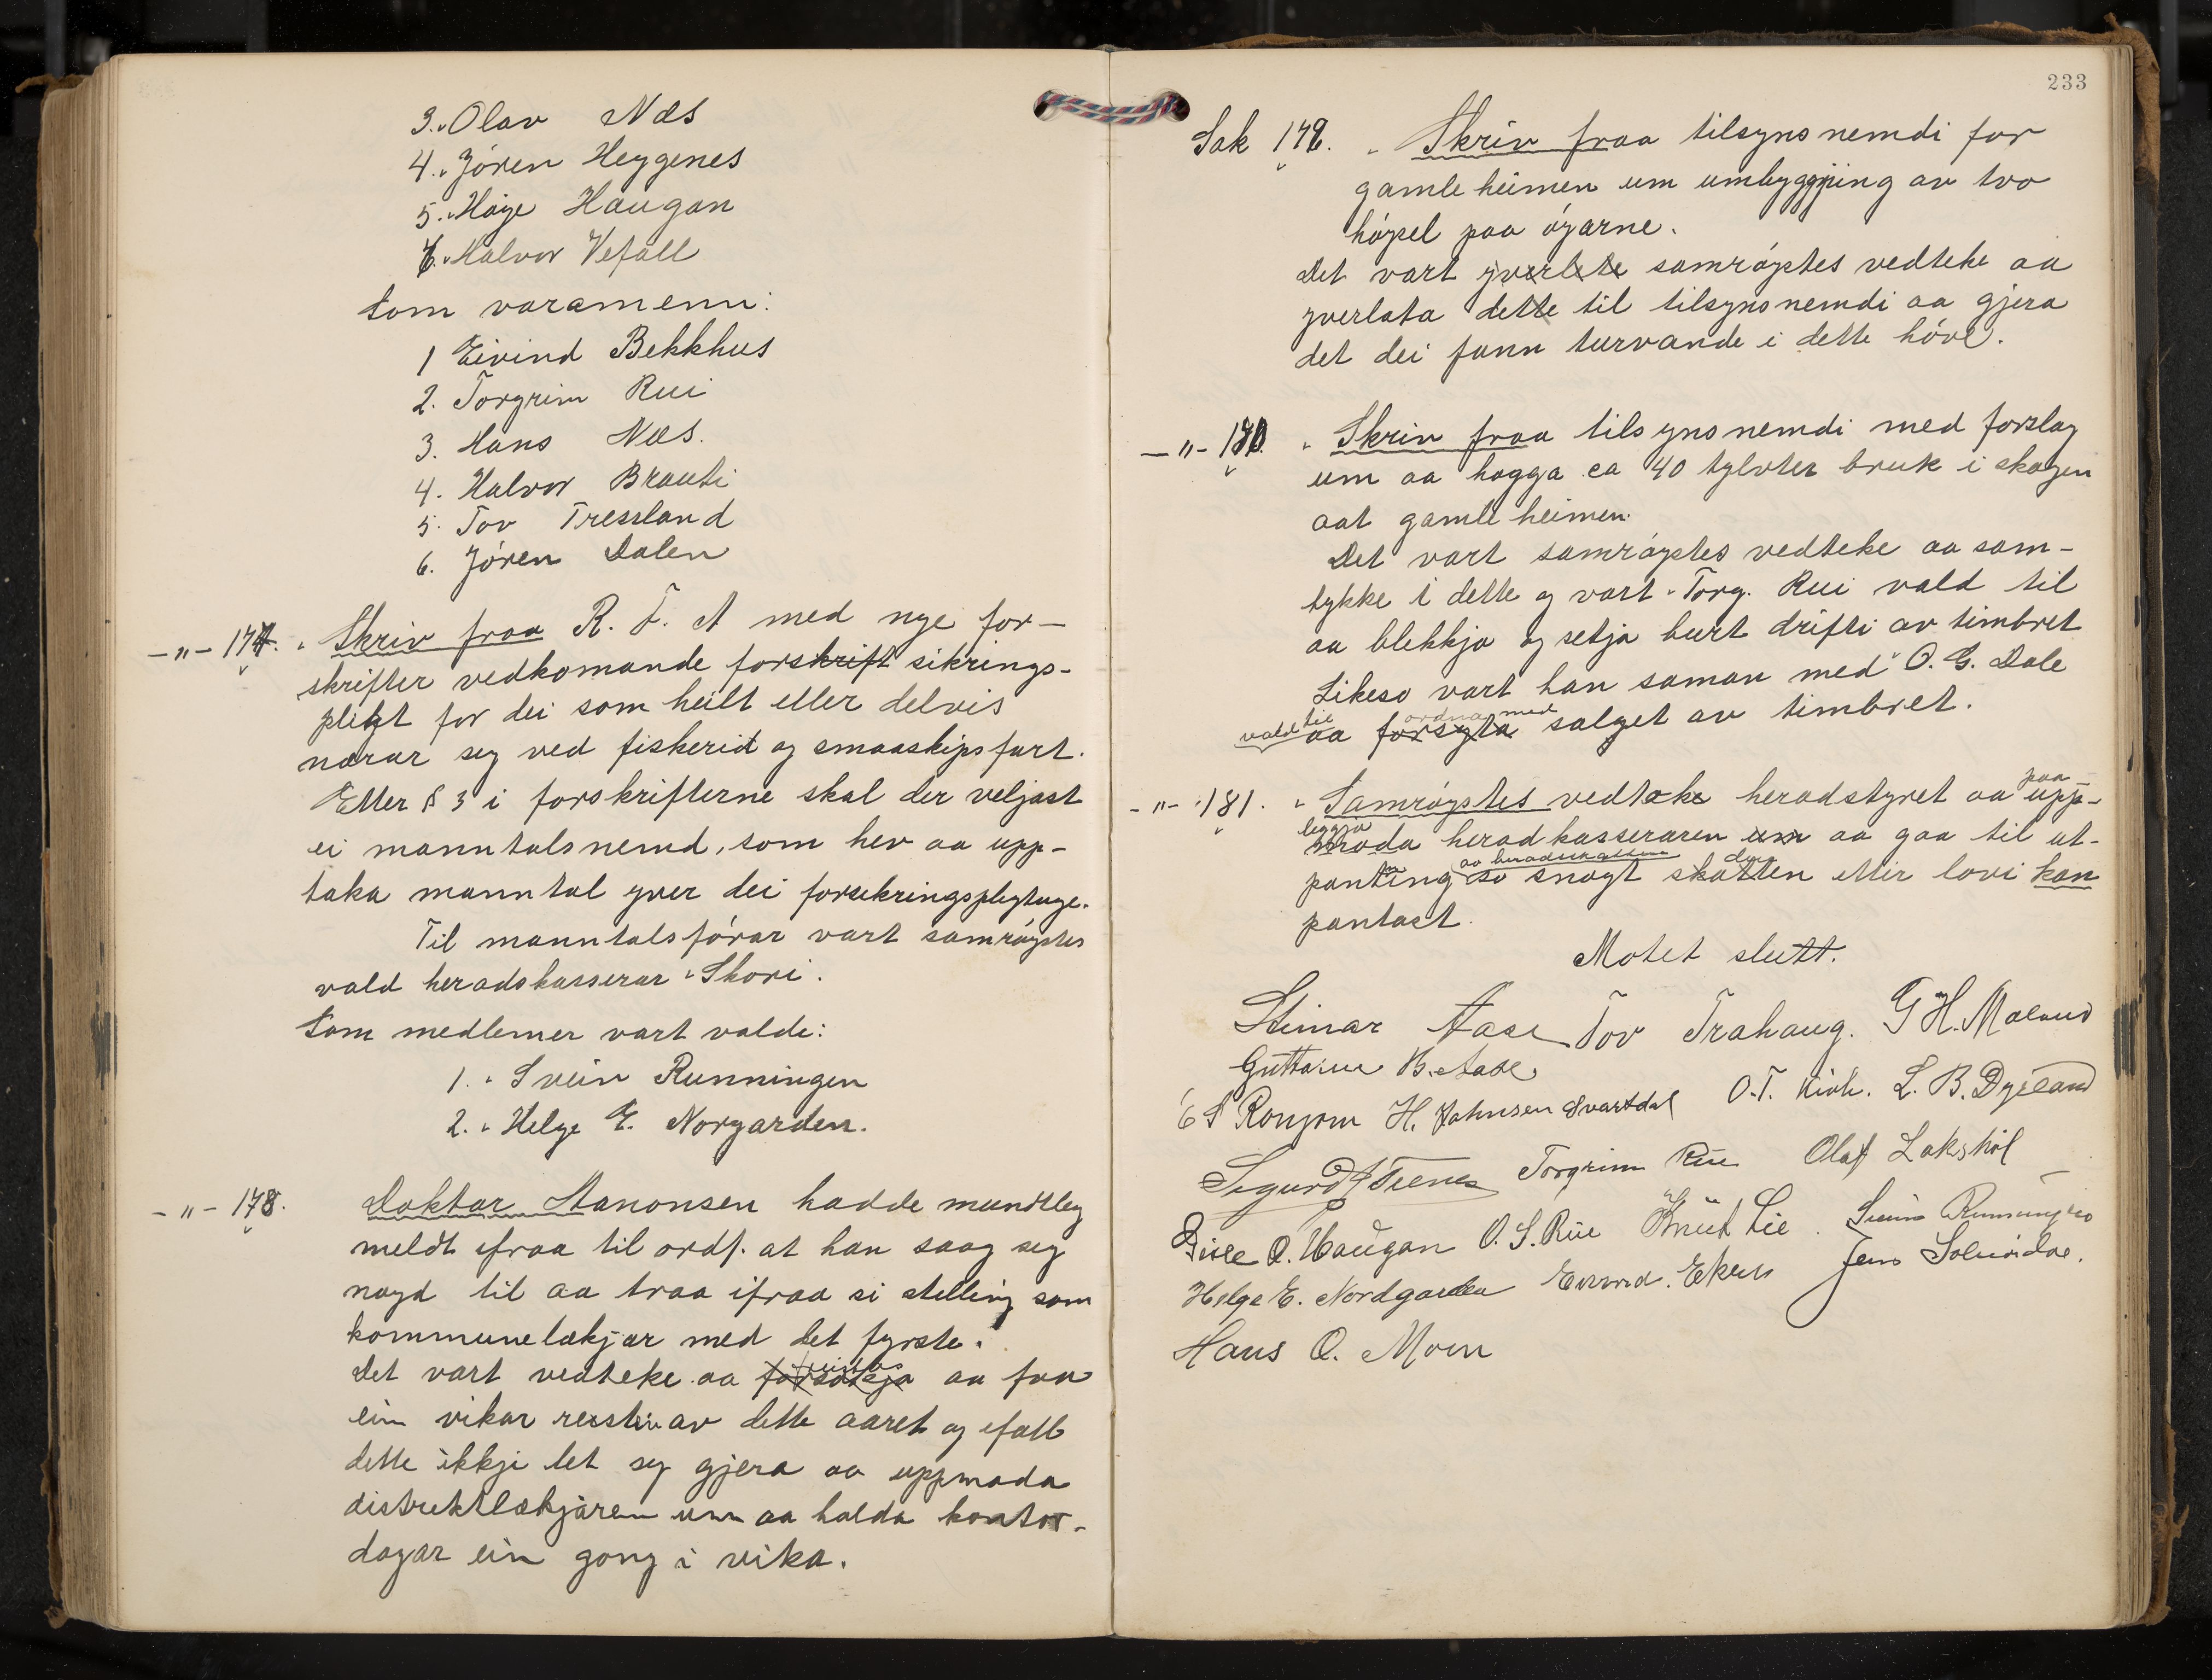 3. Olav Næs
4. Jóren Heggenes
5. Høye Haugan
6. Halvor Vefall
Som varamenn:
1 Eivind Bekkhus
2. Torgrim Rui
3. Hans Næs.
4. Halvor Brauti
5. Tov Tressland
6. Jóren Dalen
—"— 177. Skriv fraa R. F. A med nye for-
skrifter vedkomande forskrift sikrings-
plikt for dei som heilt eller delvis
nærar seg ved fiskerid og smaaskipsfart.
Etter § 3 i forskrifterne skal der veljast
ei manntalsnemd, som hev aa upp-
taka manntal yver dei forsekringsplegtuge.
Til manntalsførar vart samrøystes
vald heradskasserar Skori.
Som medlemer vart valde:
1. Svein Runningen
2. Helge E. Norgarden.
—"— 178. Doktar Aanonsen hadde mundtleg
meldt ifraa til ordf. at han saag seg
nøyd til aa traa ifraa si stelling som
kommunelækjar med det fyrste.
Det vart vedteke aa forsøkja aa faa
ein vikar resten av dette aaret og ifall
dette ikkji let seg gjera aa uppmoda
distriktslækjaren um aa halda kontor-
dagar ein gong i vika.
233
Sak 179. Skriv fraa tilsynsnemdi for
gamleheimen um umbyggjing av tvo
høysel paa øyarne.
Det vart yverlete samrøystes vedteke aa
yverlata dette til tilsynsnemdi aa gjera
det dei fann turvande i dette høve.
—"— 180. Skriv fraa tilsynsnemdi med forslag
um aa hogga ca 40 tylvter bruk i skogen
aat gamleheimen.
Det vart samrøystes vedteke aa sam-
tykke i dette og vart Torg. Rui vald til
aa blekkja og setja burt drifti av timbret
Likeso vart han saman med O. G. Dale
vald til aa forsyta ordna med salget av timbret.
—"— 181. Samrøystes vedteke heradstyret aa paa upp-
leggja moda heradkasseraren um aa gaa til ut-
panting av heradskatten so snøgt skatten den etter lovi kan
pantast.
Møtet slutt.
Steinar Aase Tov Trahaug. G H. Moland
Guttorm B. Aase
E S Ronjom H. Johnsen Svartdal O. T. L. B. Dyrland
Sigurd Teenes Torgrim Rui Olaf Lakshól
Gisle O. Haugan O. S. Rue Knut Lie Svein Runningen
Helge E. Nordgarden Eivind Ekhus Jens
Hans O. Moen